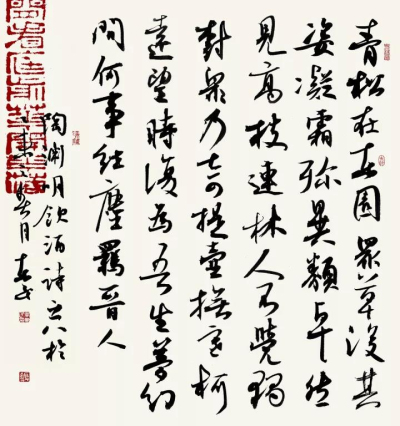 青松在東園眾草沒其
姿凝霜殄異類卓然
見高枝連林人不覺獨
樹眾乃奇提壺撫寒柯
遠望時復為吾生夢幻
間何事紲塵羈晉人
陶淵明飲酒詩之八於
月